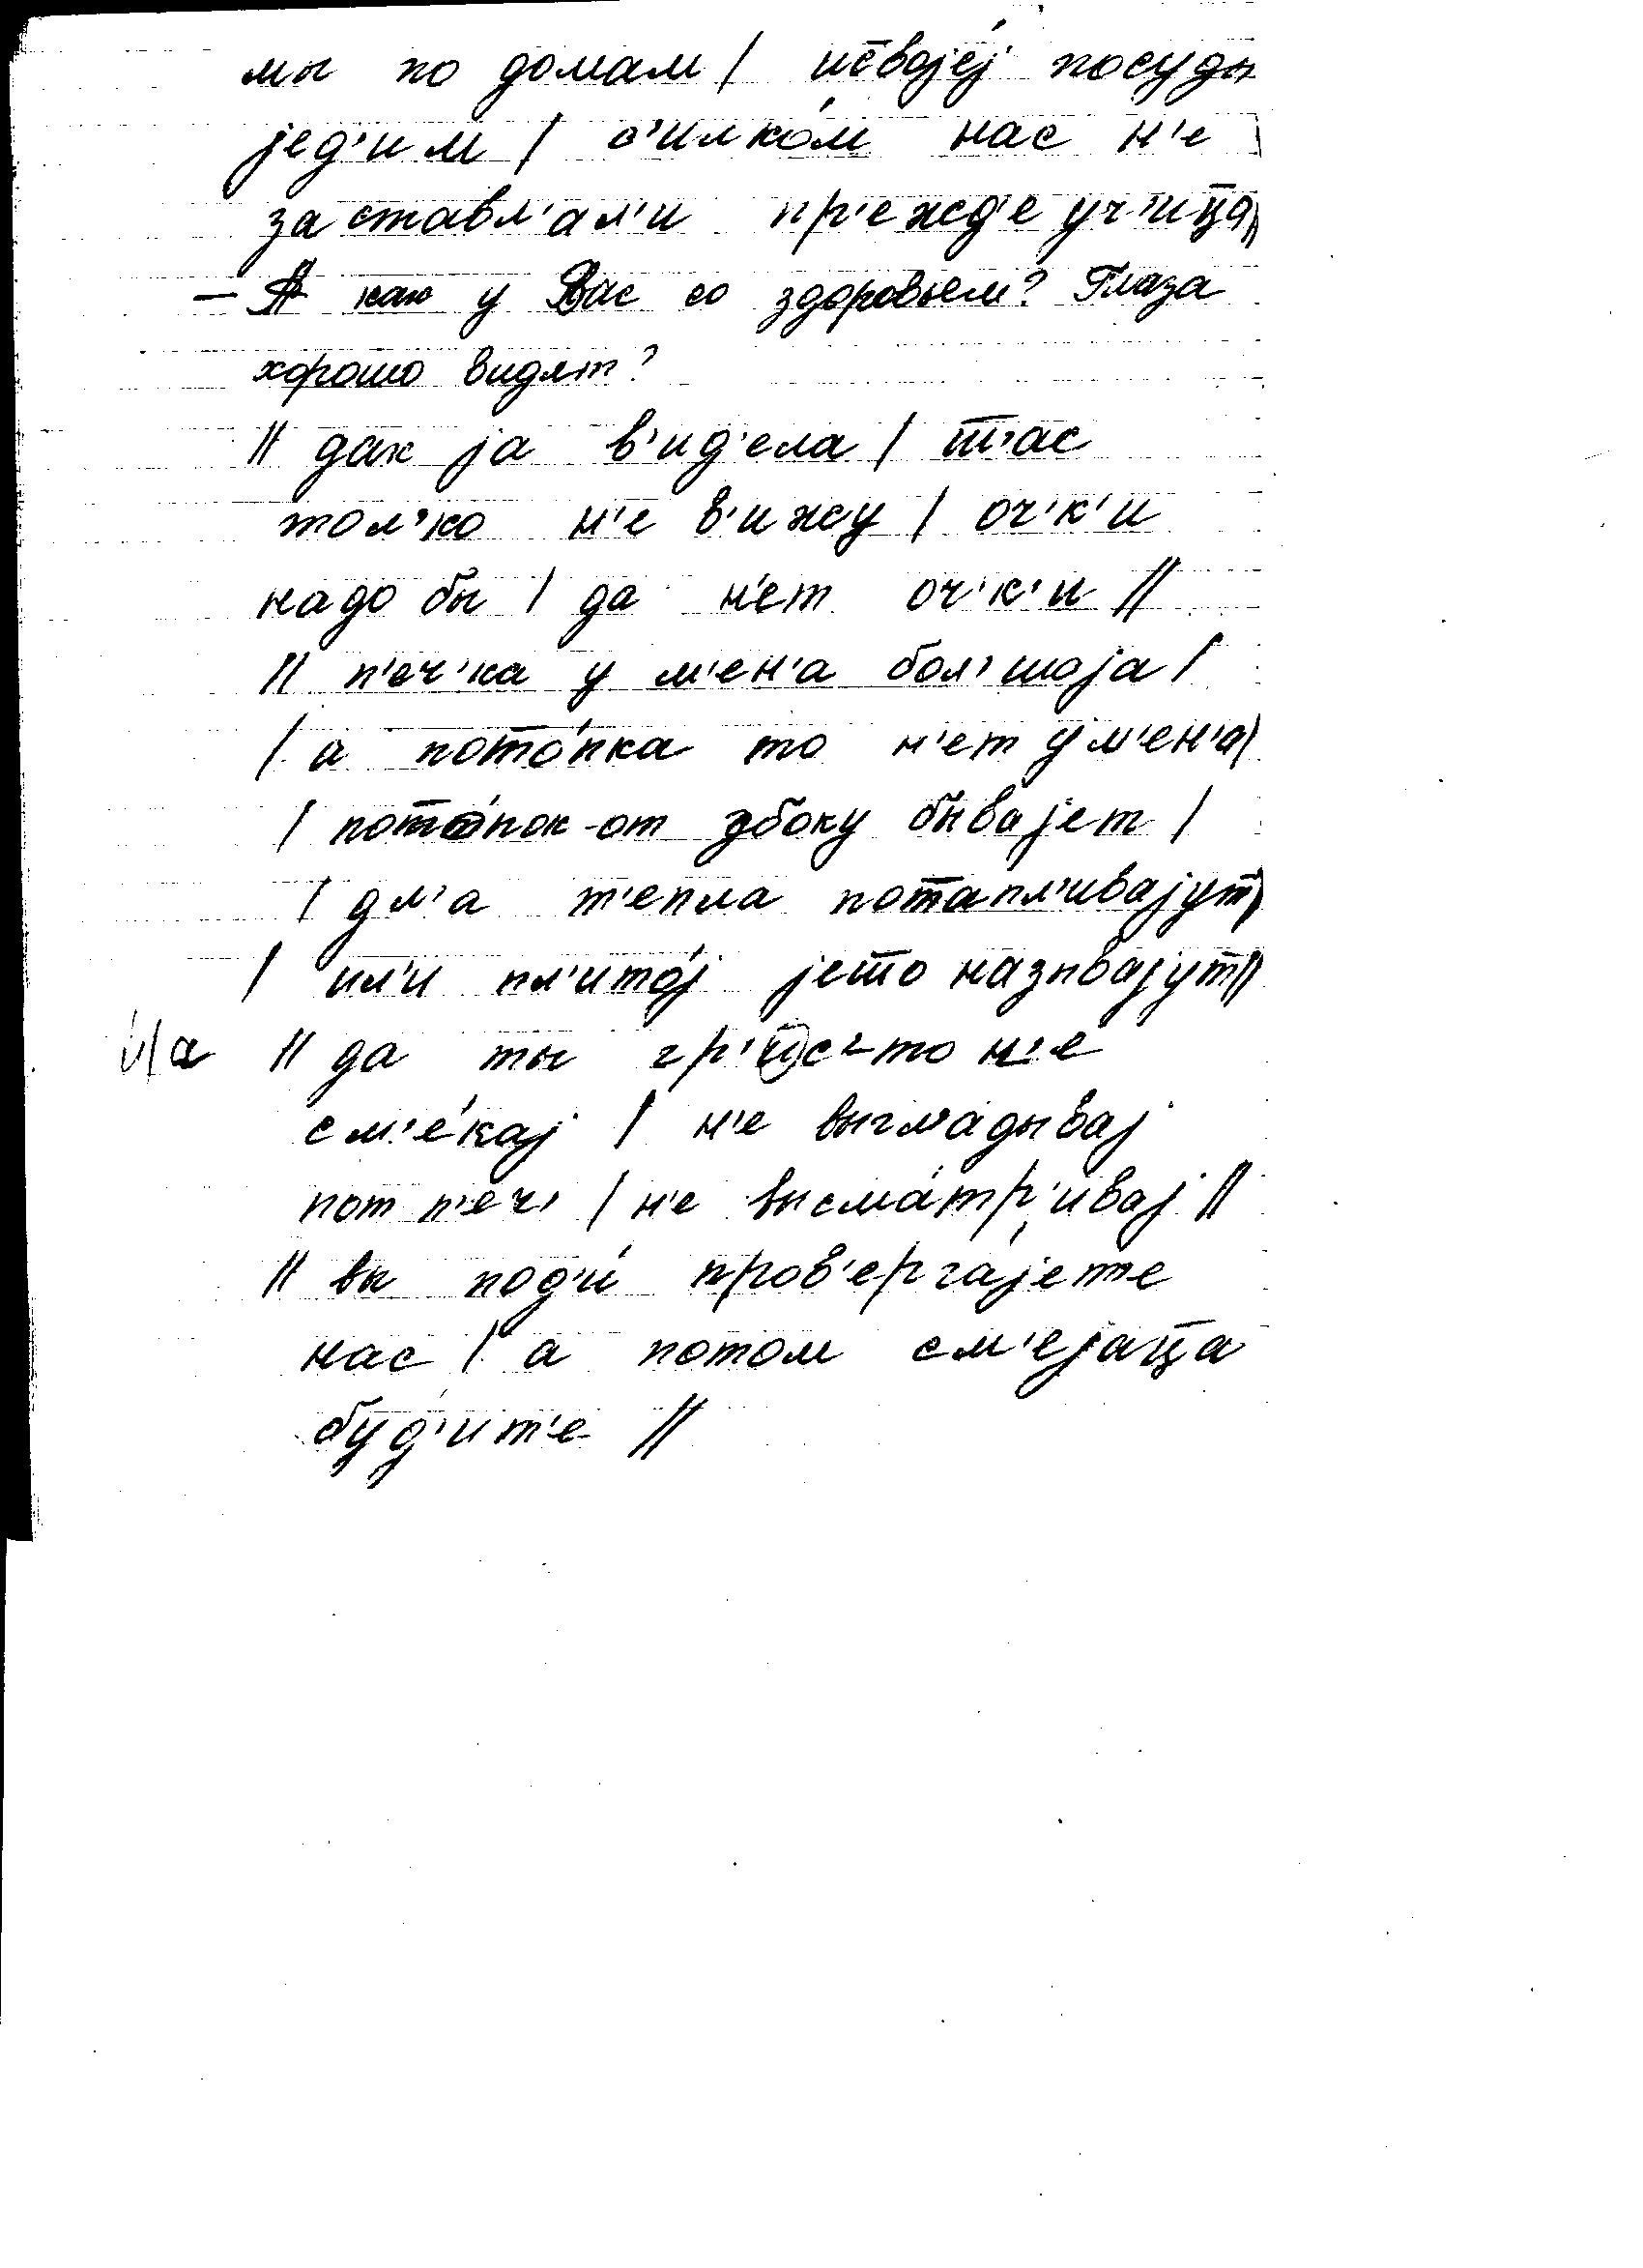 мы по домам / ис̄војéј посуды
јед'им / с'илкóм нас н'е
заставл'ал'и пр'ежд'е уч'иц̄а //
– А как у Вас со здоровьем? Глаза
хорошо видят?
// дак ја в'ид'ела / т̄'ас
тол'ко н'е в'ижу / оч'к'и
надо бы / да н'ет оч'к'и //
// п'еч'ка у м'ен'а бол'шоја /
/ а потóпка то н'ет ум'ен'а /
/ потóпок-от збоку быва́јет /
/ дл'а т'епла потапл'ивајут /
/ ил'и пл'итóј јето называјут //
и́/а // да ты гр'ис'-то н'е
см'е́кај / н'е выгл'а́дывај
пот п'еч' / н'е высма́тр'ивај //
// вы под'и́ пров'ерга́јет'е
нас / а потом см'ејац̄а
буд'ит'е //